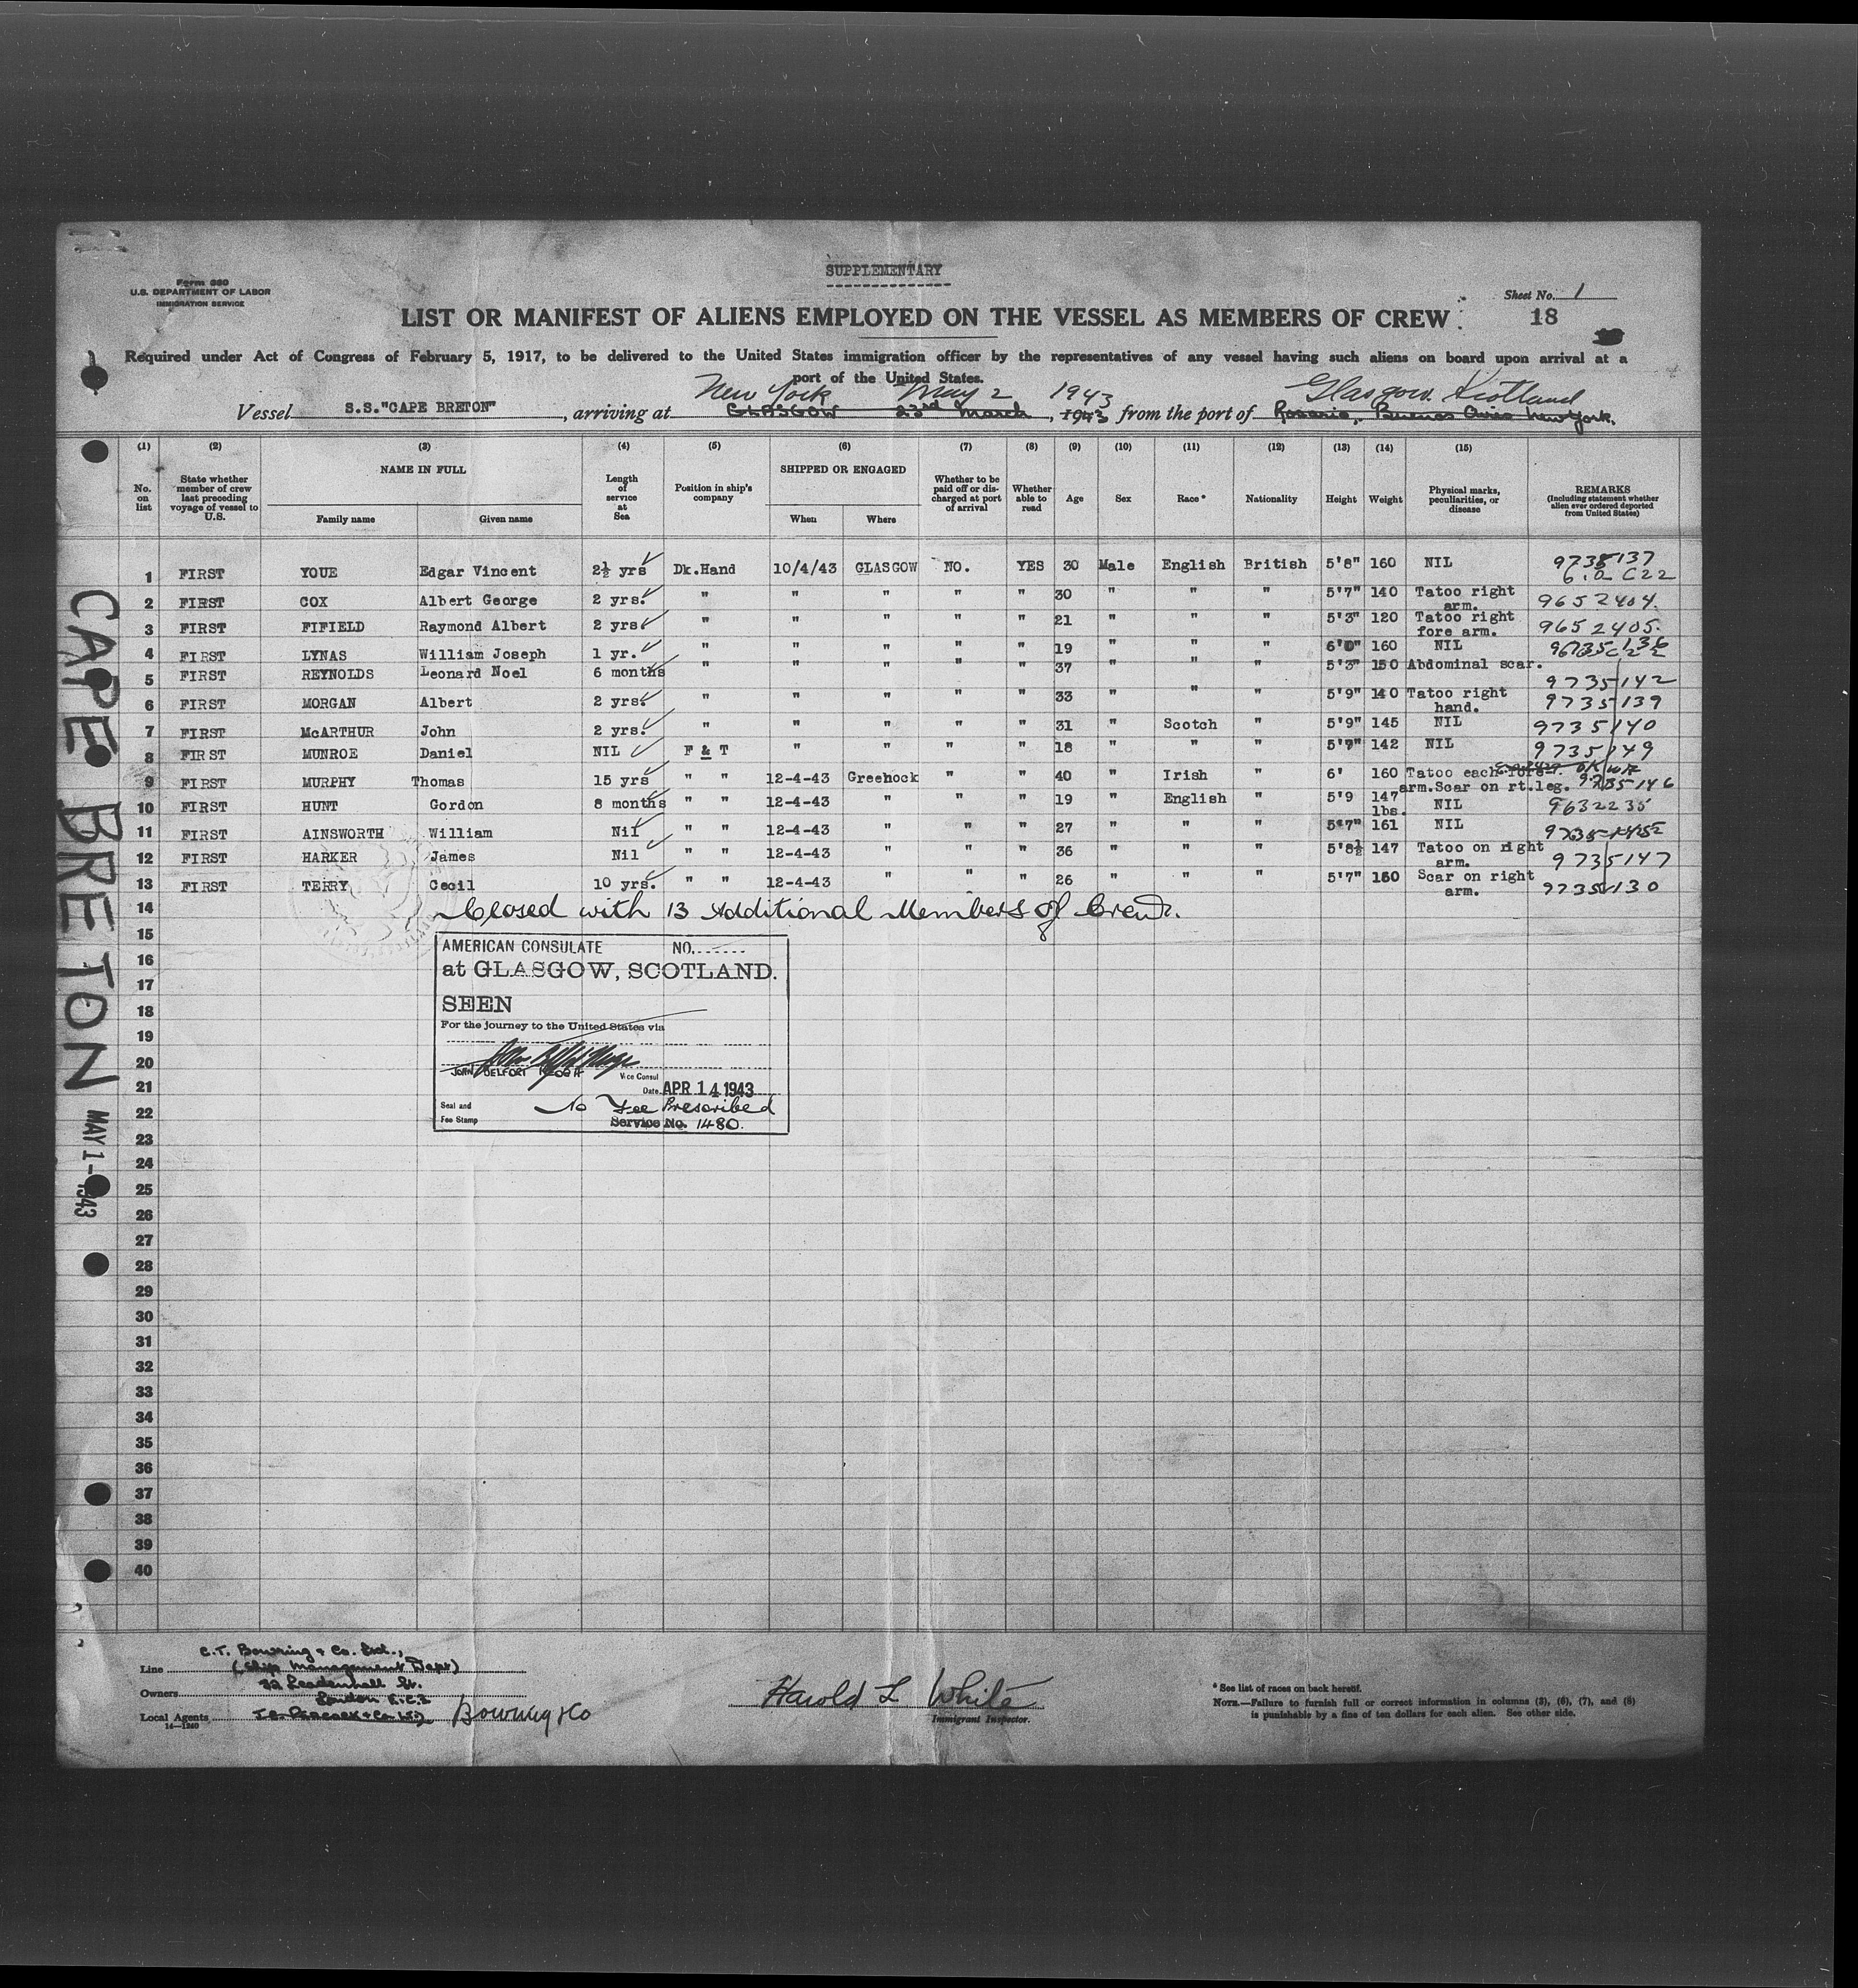 SUPPLEMENTARY
Form 680
U.S. DEPARTMENT OF LABOR
IMMIGRATION SERVICE
Sheet No. 1
18
LIST OR MANIFEST OF ALIENS EMPLOYED ON THE VESSEL AS MEMBERS OF CREW
Required under Act of Congress of February 5, 1917, to be delivered to the United States immigration officer by the representatives of any vessel having such aliens on board upon arrival at a
port of the United States.
New York May 2 1943 Glasgow Scotland
Vessel S.S."CAPE BRETON", arriving at GLASGOW 23rd March, 1943 from the port of Rosario, Buenos Aires New York.
(1) (2) (3) (4) (5) (6) (7) (8) (9) (10) (11) (12) (13) (14) (15)
No. on list
State whether member of crew last preceding voyage of vessel to U.S.
NAME IN FULL
Family name
Given name
Length of service at Sea
Position in ship's company
SHIPPED OR ENGAGED
When
Where
Whether to be paid off or discharged at port of arrival
Whether able to read
Age
Sex
Race*
Nationality
Height
Weight
Physical marks, peculiarities, or disease
REMARKS
(Including statement whether alien ever ordered deported from United States)
1 FIRST YOUE Edgar Vincent 2½ yrs Dk.Hand 10/4/43 GLASGOW NO. YES 30 Male English British 5'8" 160 NIL 9735137
C22
2 FIRST COX Albert George 2 yrs. " " " " " 30 " " " 5'7" 140 Tatoo right arm. 9652404.
3 FIRST FIFIELD Raymond Albert 2 yrs " " " " " 21 " " " 5'3" 120 Tatoo right fore arm. 9652405.
4 FIRST LYNAS William Joseph 1 yr. " " " " " 19 " " " 6'0" 160 NIL
5 FIRST REYNOLDS Leonard Noel 6 months " " " " " 37 " " " 5'3" 150 Abdominal scar. 9735142
6 FIRST MORGAN Albert 2 yrs. " " " " " 33 " " " 5'9" 140 Tatoo right hand. 9735139
7 FIRST McARTHUR John 2 yrs. " " " " " 31 " Scotch " 5'9" 145 NIL 9735140
8 FIRST MUNROE Daniel NIL F & T " " " " 18 " " " 5'7" 142 NIL 9735149
9 FIRST MURPHY Thomas 15 yrs " " 12-4-43 Greenock " " 40 " Irish " 6' 160 Tatoo each fore arm.Scar on rt.leg. 9735146
10 FIRST HUNT Gordon 8 months " " 12-4-43 " " " 19 " English " 5'9 147 lbs. NIL 9632235
11 FIRST AINSWORTH William Nil " " 12-4-43 " " " 27 " " " 5'7" 161 NIL
12 FIRST HARKER James Nil " " 12-4-43 " " " 36 " " " 5'8½ 147 Tatoo on right arm. 9735147
13 FIRST TERRY Cecil 10 yrs. " " 12-4-43 " " " 26 " " " 5'7" 150 Scar on right arm. 9735130
14 Closed with 13 Additional Members of Crew.
15
16
17
18
19
20
21
22
23
24
25
26
27
28
29
30
31
32
33
34
35
36
37
38
39
40
AMERICAN CONSULATE NO.
at GLASGOW, SCOTLAND.
SEEN
For the journey to the United States via
JOHN BELFORT KEOGH
Vice Consul
Date APR 14 1943
Seal and Fee Stamp
No Fee Prescribed
Service No. 1480.
CAPE BRETON
MAY 1-1943
C.T. Bowring & Co. Ltd.,
Line (Ship Management Dept)
32 Leadenhall St.
Owners London E.C.3
Local Agents J.E. Peacock & Co. Bowring & Co
14—1240
Harold L White
Immigrant Inspector.
* See list of races on back hereof.
NOTE.—Failure to furnish full or correct information in columns (3), (6), (7), and (8)
is punishable by a fine of ten dollars for each alien. See other side.